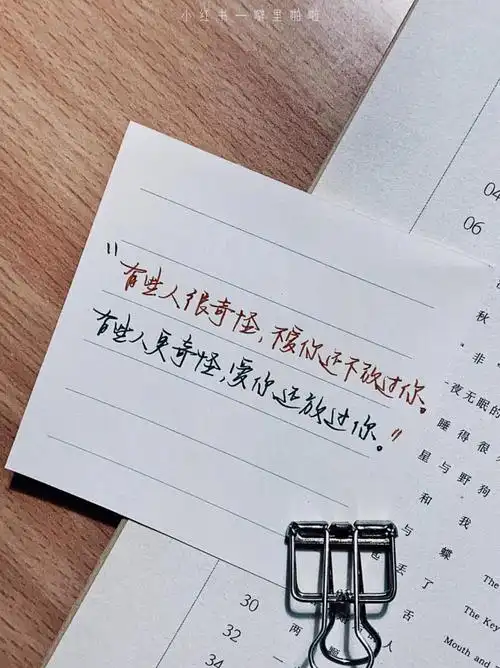 小红书—噼里啪啦
"有些人很奇怪，不爱你还不放过你。
有些人更奇怪，爱你还放过你。"
04
06
秋
非
一夜无眠的
睡得很
星与野狗
和我
与蝶
丢了
舌
人
30
32
两
34
The
The Key
Mouth and